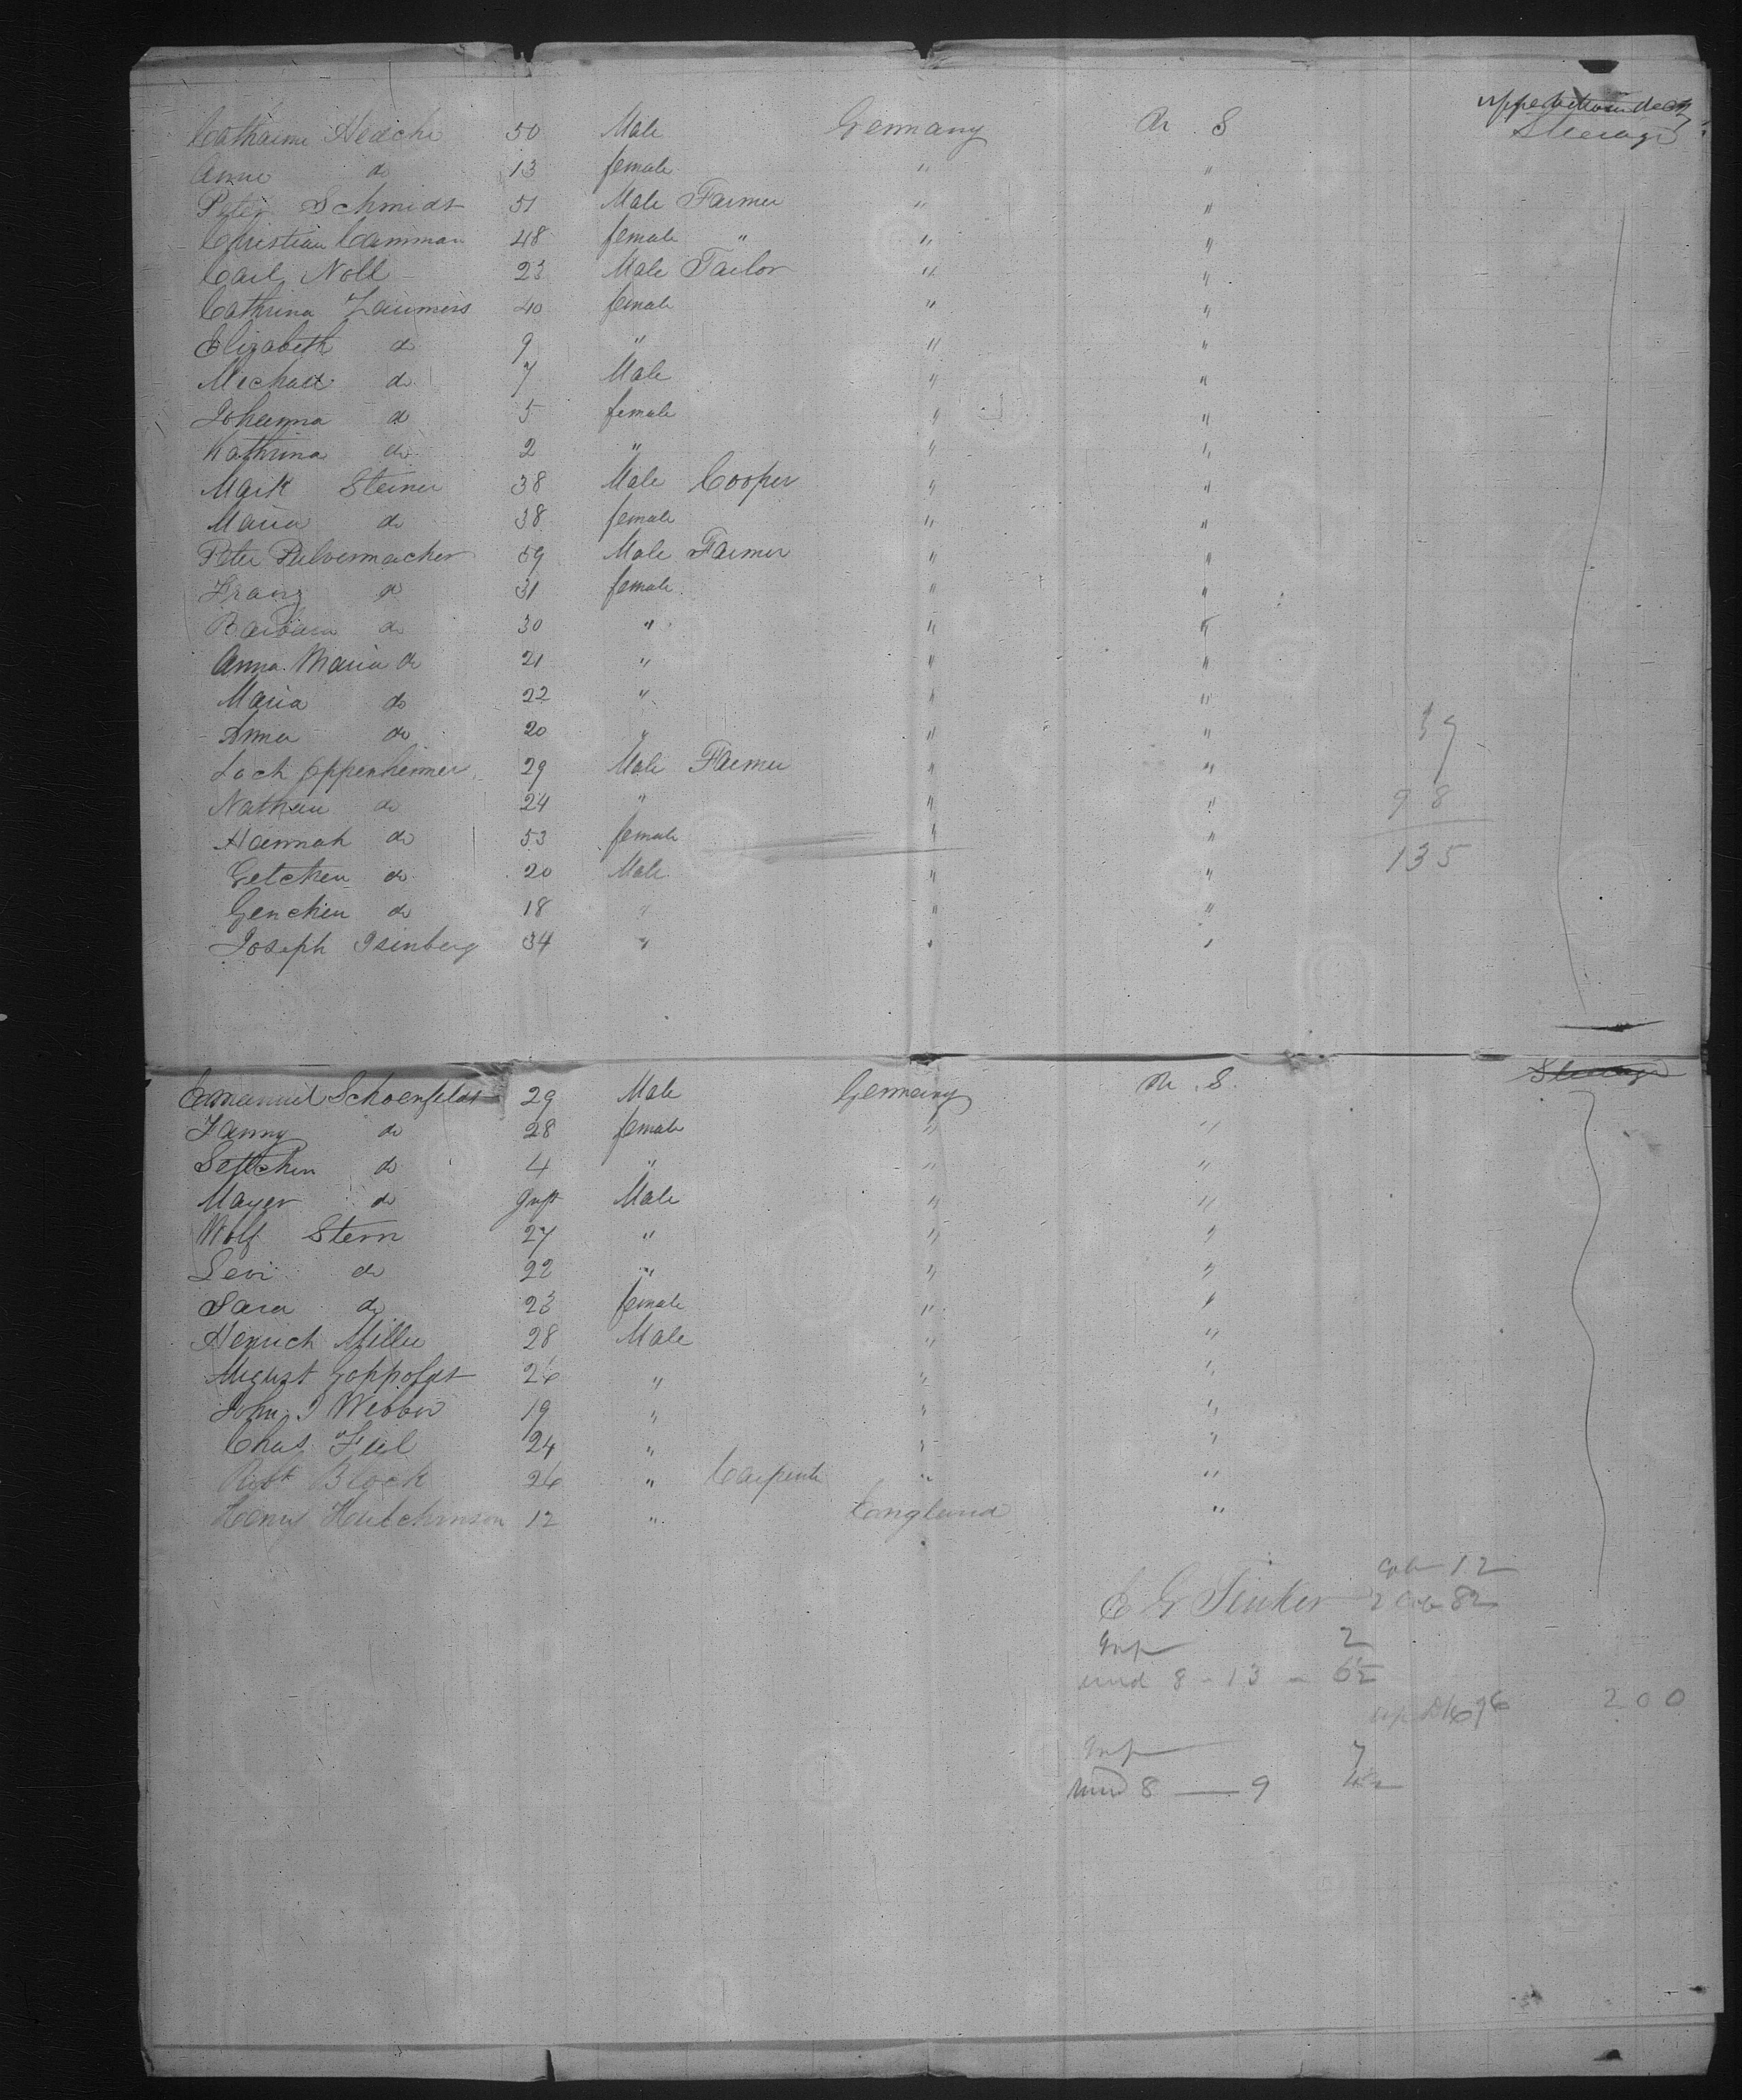 upper between decks
Catharine Hedche 50 Male Germany U. S Steerage
Anne do 13 female " "
Peter Schmidt 51 Male Farmer " "
Christian Camman 48 female " " "
Carl Noll 23 Male Tailor " "
Cathrina Laumers 40 female " "
Elizabeth do 9 " " "
Michael do 7 Male " "
Johanna do 5 female " "
Kathrina do 2 " " "
Mark Steiner 38 Male Cooper " "
Maria do 38 female " "
Peter Pulvermacher 59 Male Farmer " "
Franz do 31 female " "
Barbara do 30 " " "
Anna Maria do 21 " " "
Maria do 22 " " "
Anna do 20 " " " 39
Oppenheimer 29 Male Farmer " "
Nathan do 24 " " " 98
Hannah do 53 female " "
Getchen do 20 Male " " 135
Genchen do 18 " " "
Joseph Isinberg 34 " " "
Emanuel Schoenfeldt 29 Male Germany U. S. Steerage
Fanny do 28 female " "
Settchen do 4 " " "
Mayer do Inft Male " "
Wolf Stern 27 " " "
Levi do 22 " " "
Sara do 23 female " "
Henrich Miller 28 Male " "
August Goppoldt 26 " " "
John J Webber 19 " " "
Chas Feil 24 " " "
Robt Block 26 " Carpente " "
Henry Hutchinson 12 " England "
Cab 12
E G Tinker 2 Cab 82
Inf 2
und 8 - 13 -
200
Inf 7
und 8 — 9